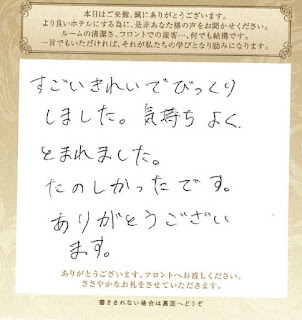 本日はご来館、誠にありがとうございます。
より良いホテルにする為に、是非あなた様の声をお聞かせください。
ルームの清潔さ、フロントでの接客…、何でも結構です。
一言でもいただければ、それが私たちの学びとなり励みになります。
すごいきれいでびっくり
しました。気持ちよく
とまれました。
たのしかったです。
ありがとうござい
ます。
ありがとうございます。フロントへお渡しください。
ささやかなお礼をさせていただきます。
書ききれない場合は裏面へどうぞ